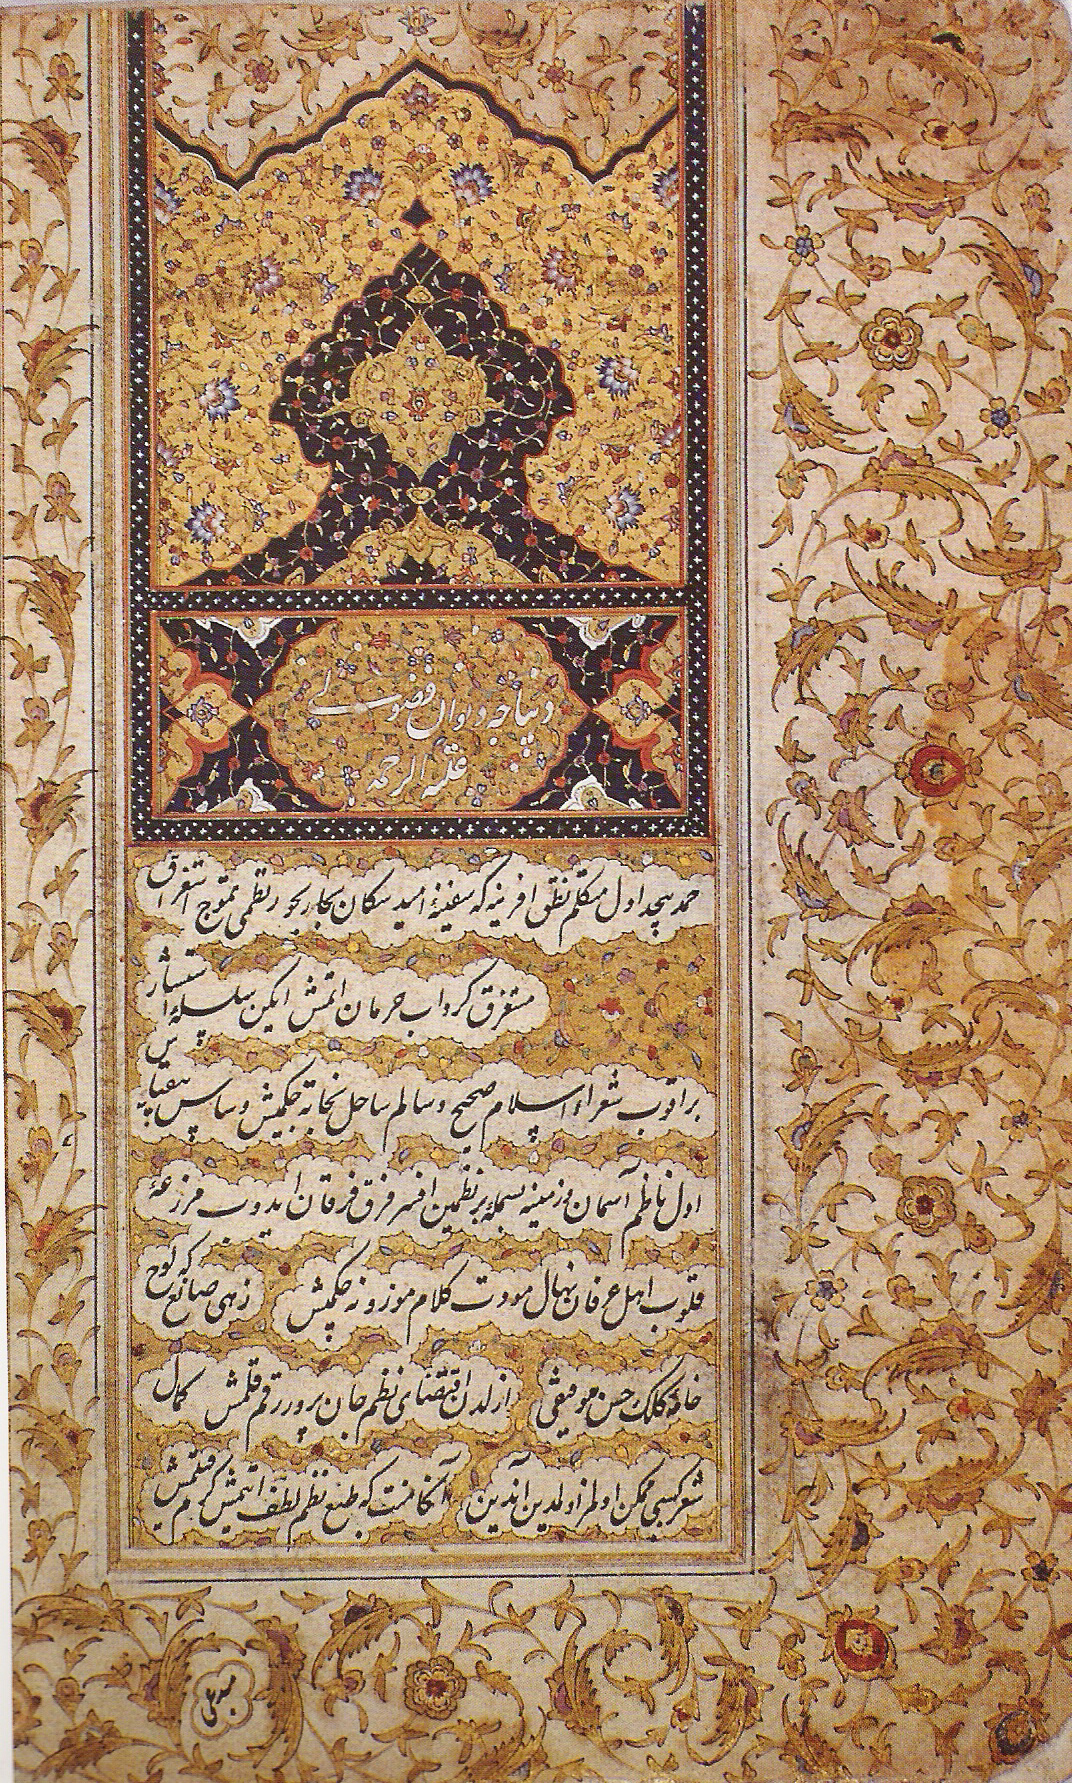 دیباجه دیوان فضولی
علیه الرحمه
حمد بیحد اول متکلم نطق افرینه که سفینۀ امید سکان بحار بحور نظمی تموج استغراق
مستغرق گرداب حرمان اتمش ایکن سلسلۀ استثنا
براقوب شعراء اسلام صحیح و سالم ساحل نجاته چکمیش و سپاس بیقیاس
اول ناظم آسمان و زمینه بسمله بر نظمین افسر فرق فرقان ایدوب مزرعۀ
قلوب اهل عرفان نهال مودت کلام موزونه چکمیش زهی صانع که لوح
خامۀ کلک حسن موفیقی ازلدن اقتضای نظم جان پرور رقم قلمش کمال
شعر کسبی ممکن اولمز اولمدین آندین آنکا منت که طبع نظم لطف اتمیش کرم قیلمیش